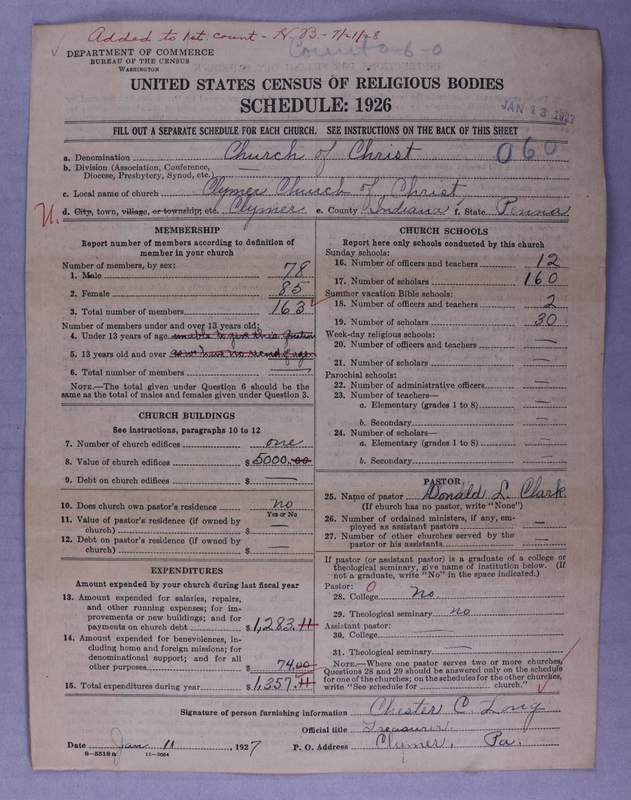 Added to 1st count - H.B. - 7/21/28
Count a-6-0
DEPARTMENT OF COMMERCE
BUREAU OF THE CENSUS
WASHINGTON
UNITED STATES CENSUS OF RELIGIOUS BODIES
SCHEDULE: 1926
JAN 13 1927
FILL OUT A SEPARATE SCHEDULE FOR EACH CHURCH. SEE INSTRUCTIONS ON THE BACK OF THIS SHEET
060
a. Denomination Church of Christ
b. Division (Association, Conference, Diocese, Presbytery, Synod, etc.) —
c. Local name of church Clymer Church of Christ
d. City, town, village, or township, etc. Clymer e. County Indiana f. State Penna
MEMBERSHIP
Report number of members according to definition of
member in your church
Number of members, by sex:
1. Male 78
2. Female 85
3. Total number of members 163
Number of members under and over 13 years old:
4. Under 13 years of age unable to give this question
5. 13 years old and over as we have no record of ages
6. Total number of members —
NOTE.—The total given under Question 6 should be the
same as the total of males and females given under Question 3.
CHURCH BUILDINGS
See instructions, paragraphs 10 to 12
7. Number of church edifices one
8. Value of church edifices $5000.00
9. Debt on church edifices $ —
10. Does church own pastor's residence no
Yes or No
11. Value of pastor's residence (if owned by
church) $ —
12. Debt on pastor's residence (if owned by
church) $ —
EXPENDITURES
Amount expended by your church during last fiscal year
13. Amount expended for salaries, repairs,
and other running expenses; for im-
provements or new buildings; and for
payments on church debt $1,283.11
14. Amount expended for benevolences, in-
cluding home and foreign missions; for
denominational support; and for all
other purposes $ 74.00
15. Total expenditures during year $1,357.11
CHURCH SCHOOLS
Report here only schools conducted by this church
Sunday schools:
16. Number of officers and teachers 12
17. Number of scholars 160
Summer vacation Bible schools:
18. Number of officers and teachers 2
19. Number of scholars 30
Week-day religious schools:
20. Number of officers and teachers —
21. Number of scholars —
Parochial schools:
22. Number of administrative officers —
23. Number of teachers—
a. Elementary (grades 1 to 8) —
b. Secondary —
24. Number of scholars—
a. Elementary (grades 1 to 8) —
b. Secondary —
PASTOR
25. Name of pastor Donald L. Clark
(If church has no pastor, write "None")
26. Number of ordained ministers, if any, em-
ployed as assistant pastors —
27. Number of other churches served by the
pastor or his assistants —
If pastor (or assistant pastor) is a graduate of a college or
theological seminary, give name of institution below. (If
not a graduate, write "No" in the space indicated.)
Pastor: 0
28. College no.
29. Theological seminary no
Assistant pastor:
30. College —
31. Theological seminary —
NOTE.—Where one pastor serves two or more churches,
Questions 28 and 29 should be answered only on the schedule
for one of the churches; on the schedules for the other churches,
write "See schedule for ........ church."
Signature of person furnishing information Chester C. Long
Official title Treasurer
Date Jan 11, 1927 P. O. Address Clymer, Pa.
8—5518a 11—9054